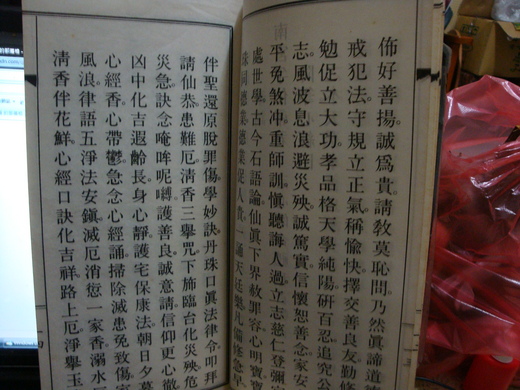 佈好善揚。誠爲貴。請教莫恥問。乃然眞諦道
戒犯法。守規立正氣。稱愉快。擇交善良友。勤修
勉促立大功。孝品格。天學純陽。研百忍。追究公
志風波息。浪避災殃。誠篤實。信懷恕。善念家安
平免煞冲。重師訓。愼聽誨。人過立志。慈仁登彌
處世學古今。石語論仙眞。下界赦罪容。心明寶
珠同德集德業促人 一
伴聖還原。脫罪傷學妙訣。丹珠口眞法律令。叩拜
請仙叅。患難厄。清香三擧。咒下施臨台。化災殃危
災急。訣念唵哞呢嚩。護善良。誠意請。信仰更心徹
凶中化吉。遐齡長。身心靜。護宅保康。法朝日夕
心經香。心帶鬱。急念心經誦。掃除滅患。免致傷
風浪律語。五淨法安鎭。滅厄消愆。一家香。溺水
清香伴花鮮。心經口訣化吉祥。路上厄。淨擧玉